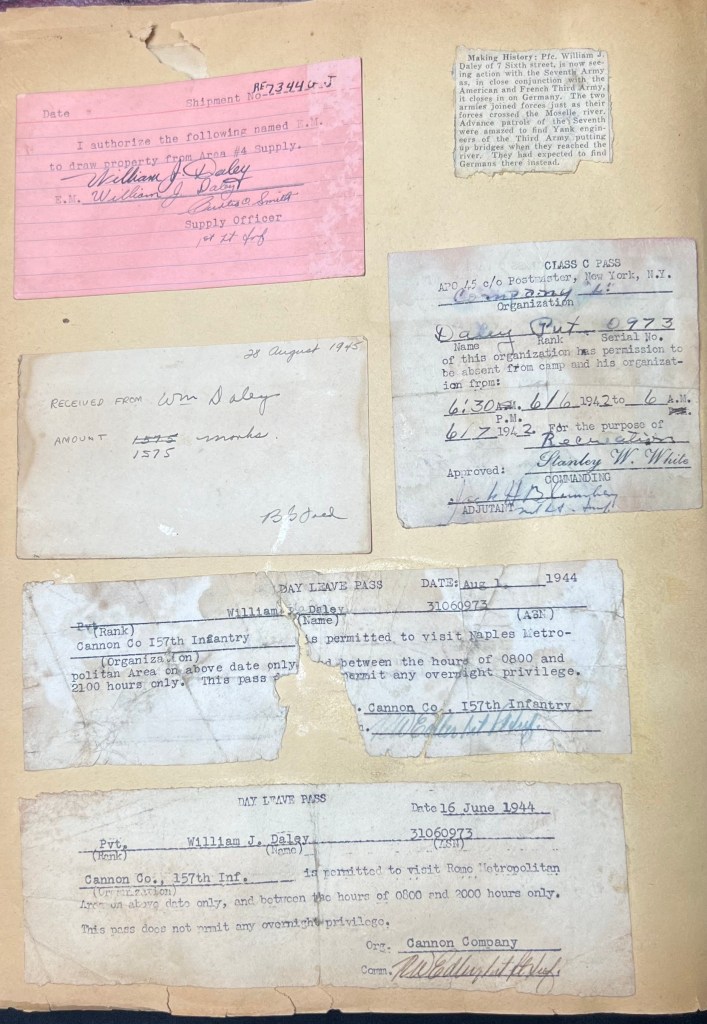 Date Shipment No. RE 73446-J
I authorize the following named E.M.
to draw property from Area #4 Supply.
William J. Daley
E.M. William J Daley
Smith
Supply Officer
1st Lt Inf
Making History: Pfc. William J.
Daley of 7 Sixth street, is now see-
ing action with the Seventh Army
as, in close conjunction with the
American and French Third Army,
it closes in on Germany. The two
armies joined forces just as their
forces crossed the Moselle river.
Advance patrols of the Seventh
were amazed to find Yank engin-
eers of the Third Army putting
up bridges when they reached the
river. They had expected to find
Germans there instead.
CLASS C PASS
APO 45 c/o Postmaster, New York, N.Y.
Company
Organization
Daley Pvt. 0973
Name Rank Serial No.
of this organization has permission to
be absent from camp and his organizat-
ion from:
6:30 A.M. 6/6 1942 to 6 A.M.
P.M. P.M.
6/7 1942. For the purpose of
Recreation
Approved: Stanley W. White
COMMANDING
Jack H B
ADJUTANT 2nd Lt. Inf
28 August 1945
RECEIVED FROM Wm Daley
AMOUNT 1575 marks.
1575
DAY LEAVE PASS DATE: Aug 1, 1944
Pvt. William J. Daley 31060973
(Rank) (Name) (ASN)
Cannon Co 157th Infantry is permitted to visit Naples Metro-
(Organization)
politan Area on above date only, and between the hours of 0800 and
2100 hours only. This pass permit any overnight privilege.
Cannon Co., 157th Infantry
RW Edley 1st Lt Inf.
DAY LEAVE PASS
Date 16 June 1944
Pvt. William J. Daley 31060973
(Rank) (Name) (ASN)
Cannon Co., 157th Inf. is permitted to visit Rome Metropolitan
(Organization)
Area on above date only, and between the hours of 0800 and 2000 hours only.
This pass does not prmit any overnight privilege.
Org. Cannon Company
Comm. RW Edley 1st Lt Inf.